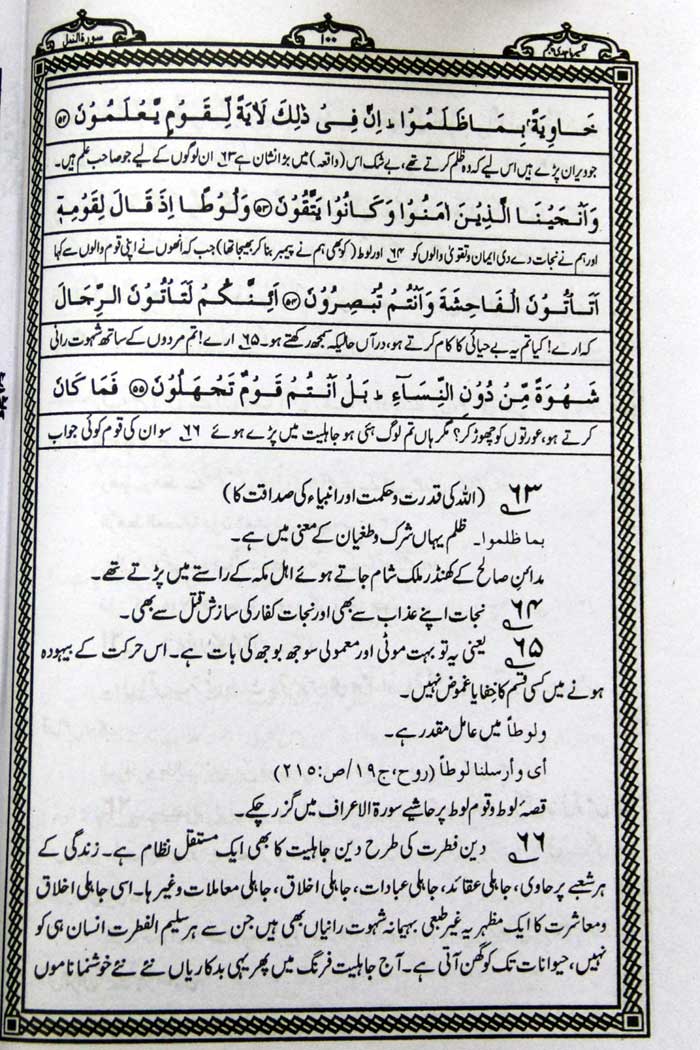 تفسیر ماجدی ۵ ۱۰۰ سورۃ النمل
خَاوِيَةً ۢ بِمَا ظَلَمُوْا ؕ اِنَّ فِىْ ذٰلِكَ لَاٰيَةً لِّقَوْمٍ يَّعْلَمُوْنَ ۵۲
جو ویران پڑے ہیں اس لیے کہ وہ ظلم کرتے تھے، بے شک اس (واقعہ) میں بڑا نشان ہے ۶۳ ان لوگوں کے لیے جو صاحب علم ہیں۔
وَاَنْجَيْنَا الَّذِيْنَ اٰمَنُوْا وَكَانُوْا يَتَّقُوْنَ ۵۳ وَلُوْطًا اِذْ قَالَ لِقَوْمِهٖۤ
اور ہم نے نجات دے دی ایمان و تقویٰ والوں کو ۶۴ اور لوط (کو بھی ہم نے پیمبر بنا کر بھیجا تھا) جب کہ انھوں نے اپنی قوم والوں سے کہا
اَتَاْتُوْنَ الْفَاحِشَةَ وَاَنْتُمْ تُبْصِرُوْنَ ۵۴ اَئِنَّكُمْ لَتَاْتُوْنَ الرِّجَالَ
کہ ارے! کیا تم یہ بے حیائی کا کام کرتے ہو، درآں حالیکہ سمجھ رکھتے ہو۔ ۶۵ ارے! تم مردوں کے ساتھ شہوت رانی
شَهْوَةً مِّنْ دُوْنِ النِّسَآءِ ؕ بَلْ اَنْتُمْ قَوْمٌ تَجْهَلُوْنَ ۵۵ فَمَا كَانَ
کرتے ہو، عورتوں کو چھوڑ کر؟ مگر ہاں تم لوگ ہئی ہو جاہلیت میں پڑے ہوئے ۶۶ سو ان کی قوم کوئی جواب
۶۳ (اللہ کی قدرت و حکمت اور انبیاء کی صداقت کا)
بما ظلموا۔ ظلم یہاں شرک و طغیان کے معنی میں ہے۔
مدائن صالح کے کھنڈر ملک شام جاتے ہوئے اہل مکہ کے راستے میں پڑتے تھے۔
۶۴ نجات اپنے عذاب سے بھی اور نجات کفار کی سازش قتل سے بھی۔
۶۵ یعنی یہ تو بہت موٹی اور معمولی سوجھ بوجھ کی بات ہے۔ اس حرکت کے بیہودہ
ہونے میں کسی قسم کا خفا یا غموض نہیں۔
ولوطاً میں عامل مقدر ہے۔
أی وأرسلنا لوطاً (روح، ج۱۹/ص:۲۱۵)
قصۂ لوط و قوم لوط پر حاشیے سورۃ الاعراف میں گزر چکے۔
۶۶ دین فطرت کی طرح دین جاہلیت کا بھی ایک مستقل نظام ہے۔ زندگی کے
ہر شعبے پر حاوی، جاہلی عقائد، جاہلی عبادات، جاہلی اخلاق، جاہلی معاملات وغیرہا۔ اسی جاہلی اخلاق
و معاشرت کا ایک مظہر یہ غیر طبعی بہیمانہ شہوت رانیاں بھی ہیں جن سے ہر سلیم الفطرت انسان ہی کو
نہیں، حیوانات تک کو گھن آتی ہے۔ آج جاہلیت فرنگ میں پھر یہی بدکاریاں نئے نئے خوشنما ناموں